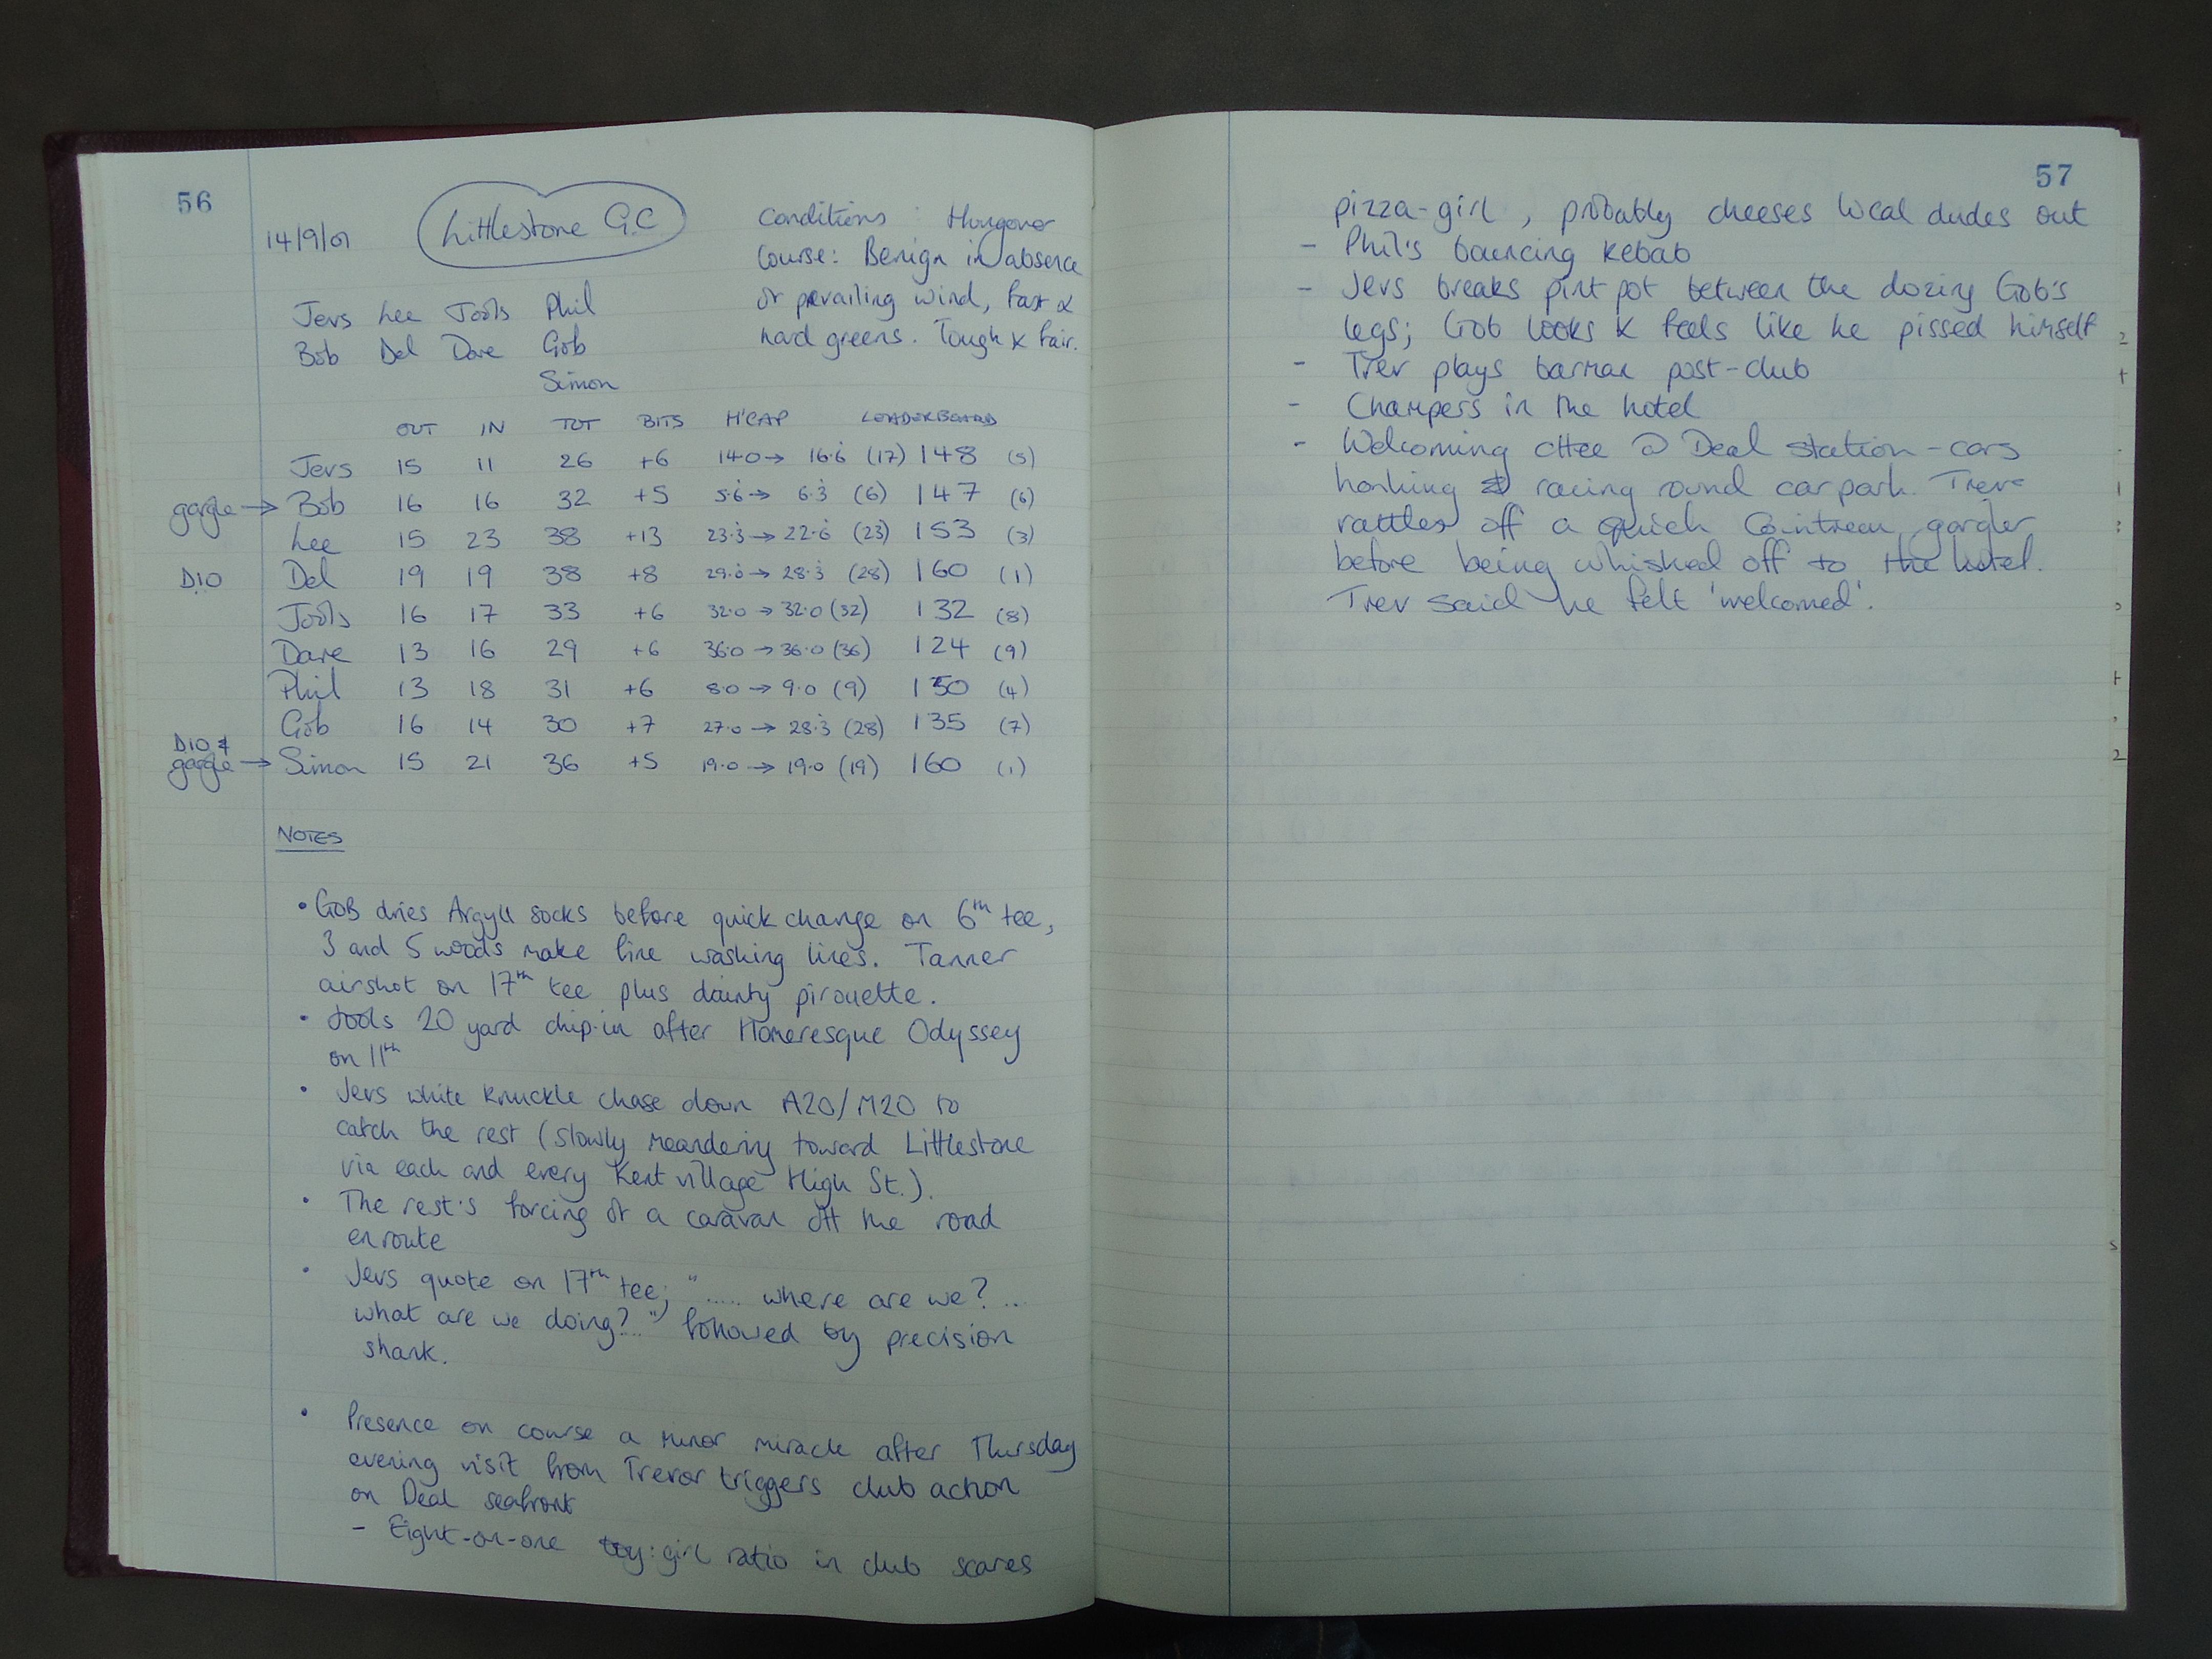 56
14/9/01
Littlestone G.C
Conditions : Hungover
Course: Benign in absence
of prevailing wind, fast &
hard greens. Tough & fair.
Jevs Lee Jools Phil
Bob Del Dave Gob
Simon
OUT IN TOT BITS H'CAP LEADERBOARD
Jevs 15 11 26 +6 14.0 → 16.6 (17) 148 (5)
gargle → Bob 16 16 32 +5 5.6 → 6.3 (6) 147 (6)
Lee 15 23 38 +13 23.3 → 22.6 (23) 153 (3)
D10 Del 19 19 38 +8 29.0 → 28.3 (28) 160 (1)
Jools 16 17 33 +6 32.0 → 32.0 (32) 132 (8)
Dave 13 16 29 +6 36.0 → 36.0 (36) 124 (9)
Phil 13 18 31 +6 8.0 → 9.0 (9) 150 (4)
Gob 16 14 30 +7 27.0 → 28.3 (28) 135 (7)
D10 &
gargle → Simon 15 21 36 +5 19.0 → 19.0 (19) 160 (1)
NOTES
• GOB dries Argyll socks before quick change on 6th tee,
3 and 5 woods make fine washing lines. Tanner
airshot on 17th tee plus dainty pirouette.
• Jools 20 yard chip-in after Homeresque Odyssey
on 11th
• Jevs white knuckle chase down A20/M20 to
catch the rest (slowly meandering toward Littlestone
via each and every Kent village High St.).
• The rest's forcing of a caravan off the road
enroute
• Jevs quote on 17th tee; "..... where are we? ...
what are we doing?..." followed by precision
shank.
• Presence on course a minor miracle after Thursday
evening visit from Trevor triggers club action
on Deal seafront
- Eight-on-one boy:girl ratio in club scares
57
pizza-girl, probably cheeses local dudes out
- Phil's bouncing kebab
- Jevs breaks pint pot between the dozing Gob's
legs; Gob looks & feels like he pissed himself
- Trev plays barman post-club
- Champers in the hotel
- Welcoming cttee @ Deal station - cars
honking & racing round car park. Trev
rattles off a quick Cointreau gargler
before being whisked off to the hotel.
Trev said he felt 'welcomed'.